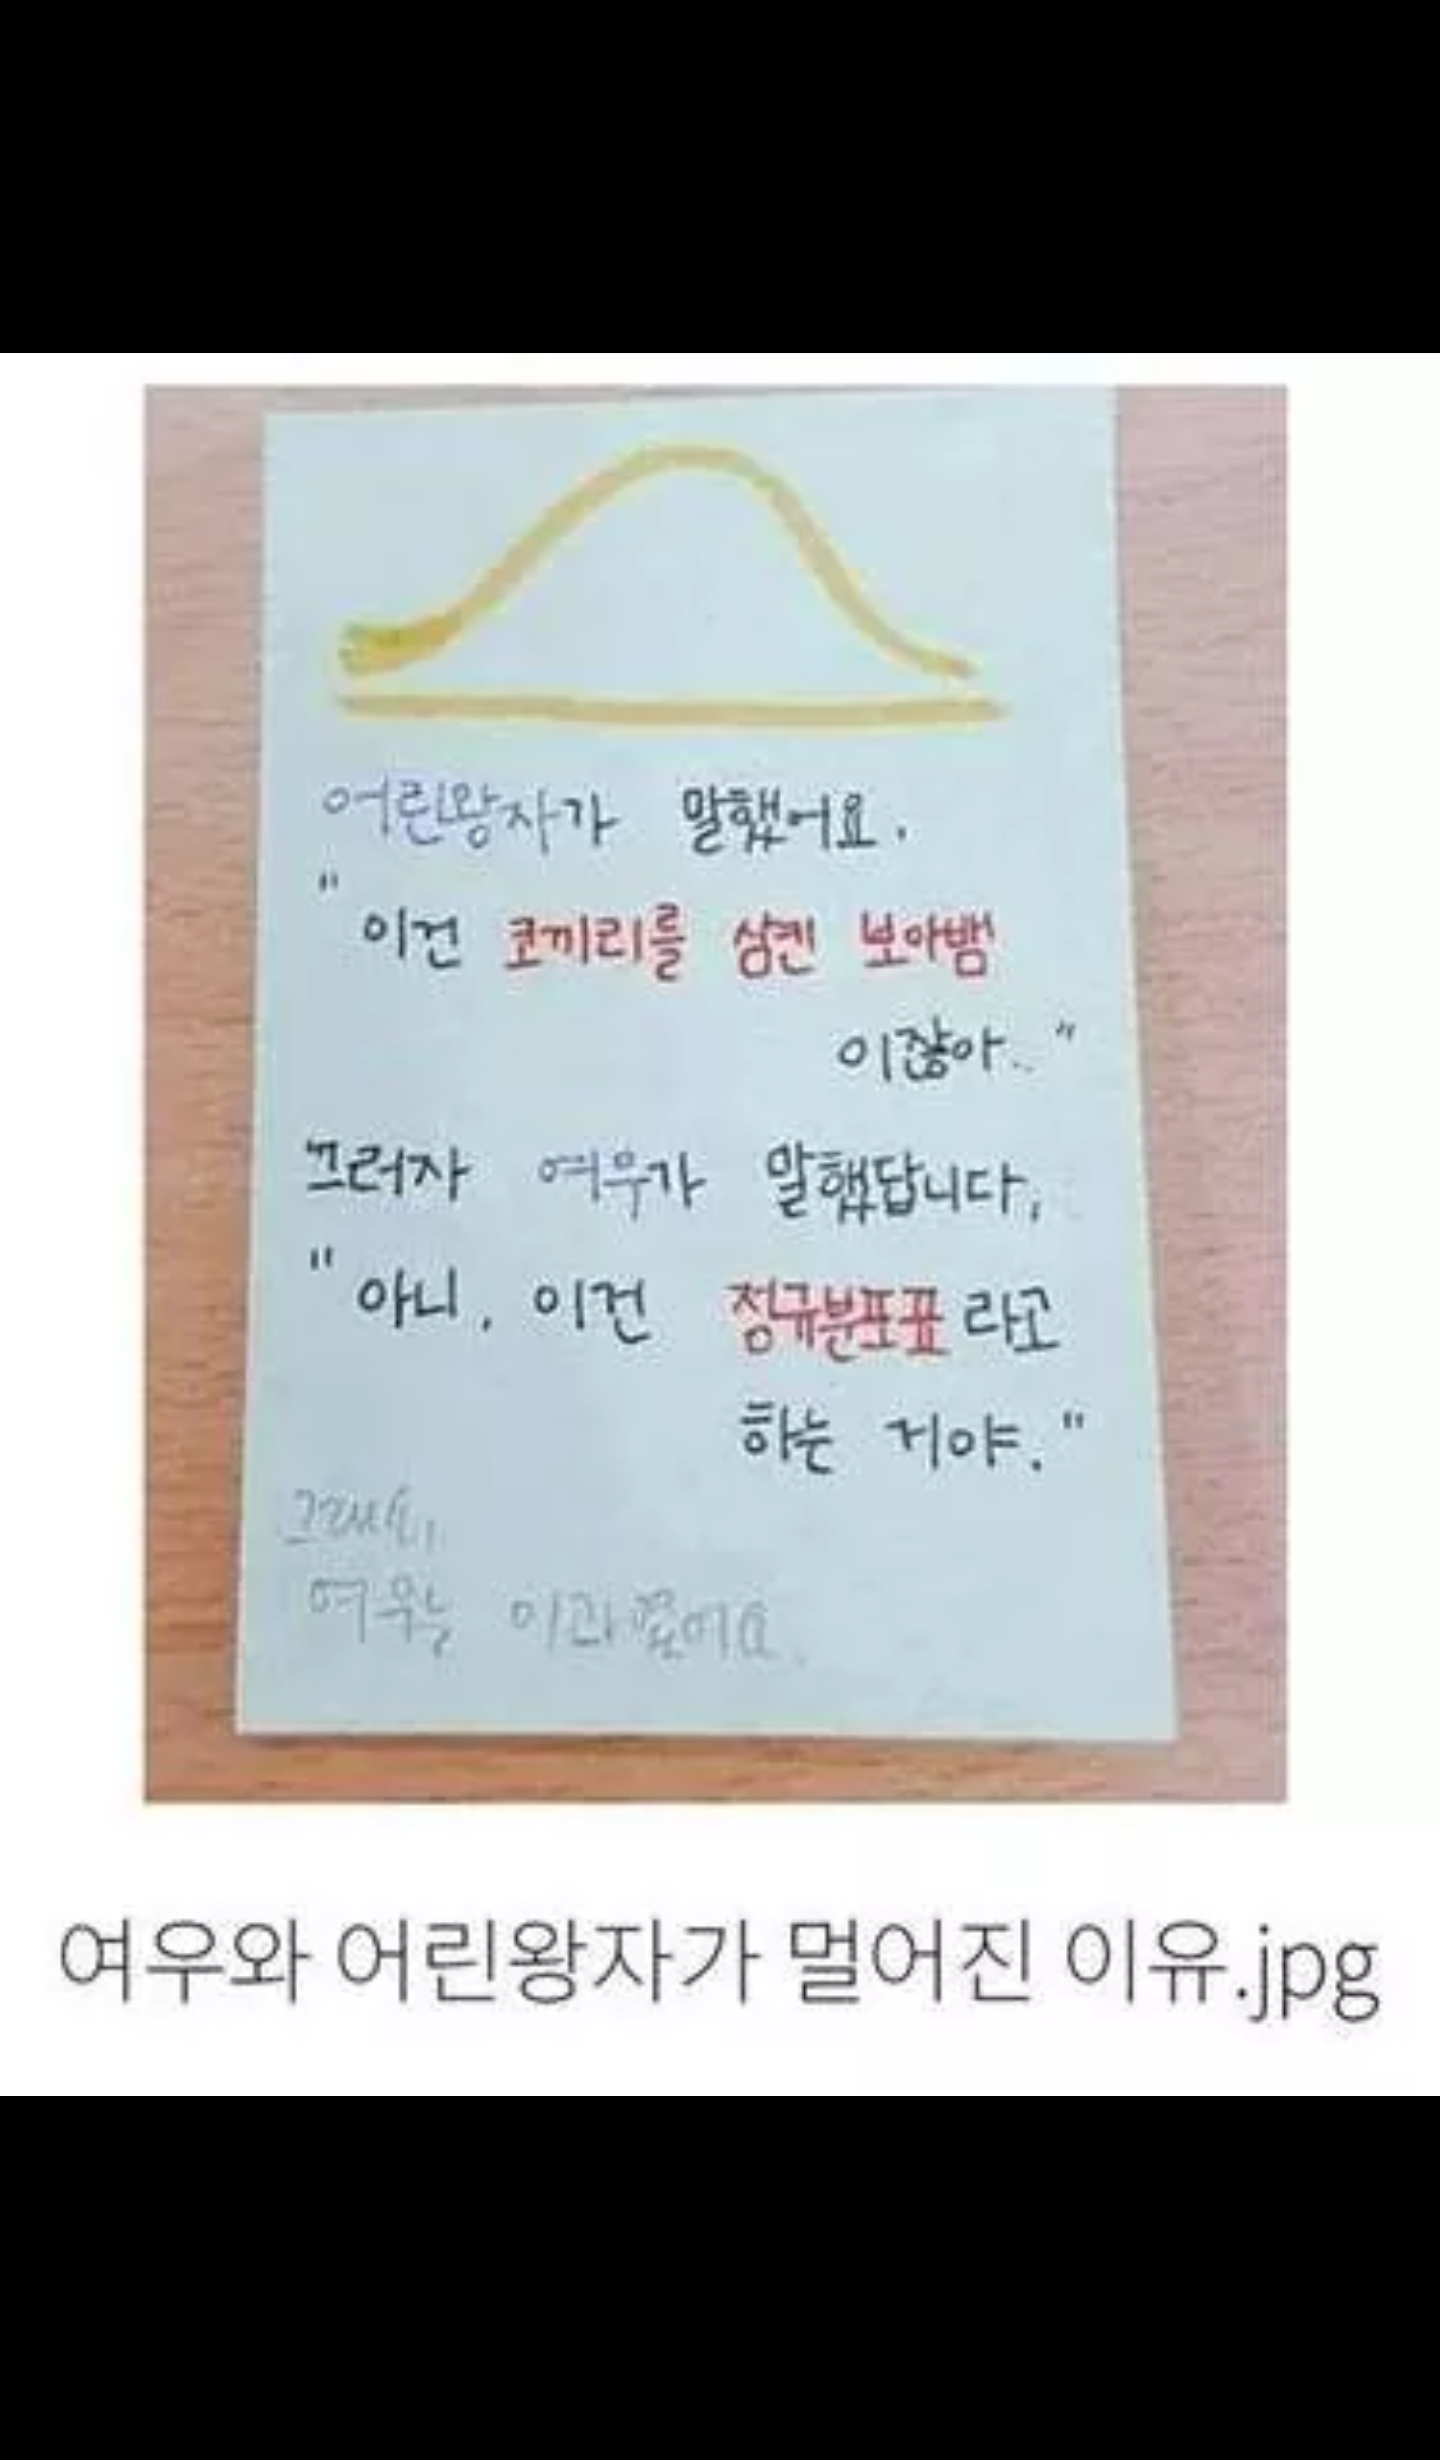 어린왕자가 말했어요.
"이건 코끼리를 삼킨 보아뱀
이잖아.."
그러자 여우가 말했답니다,
"아니, 이건 정규분포표라고
하는 거야."
그래서,
여우는 이과 갔어요.
여우와 어린왕자가 멀어진 이유.jpg